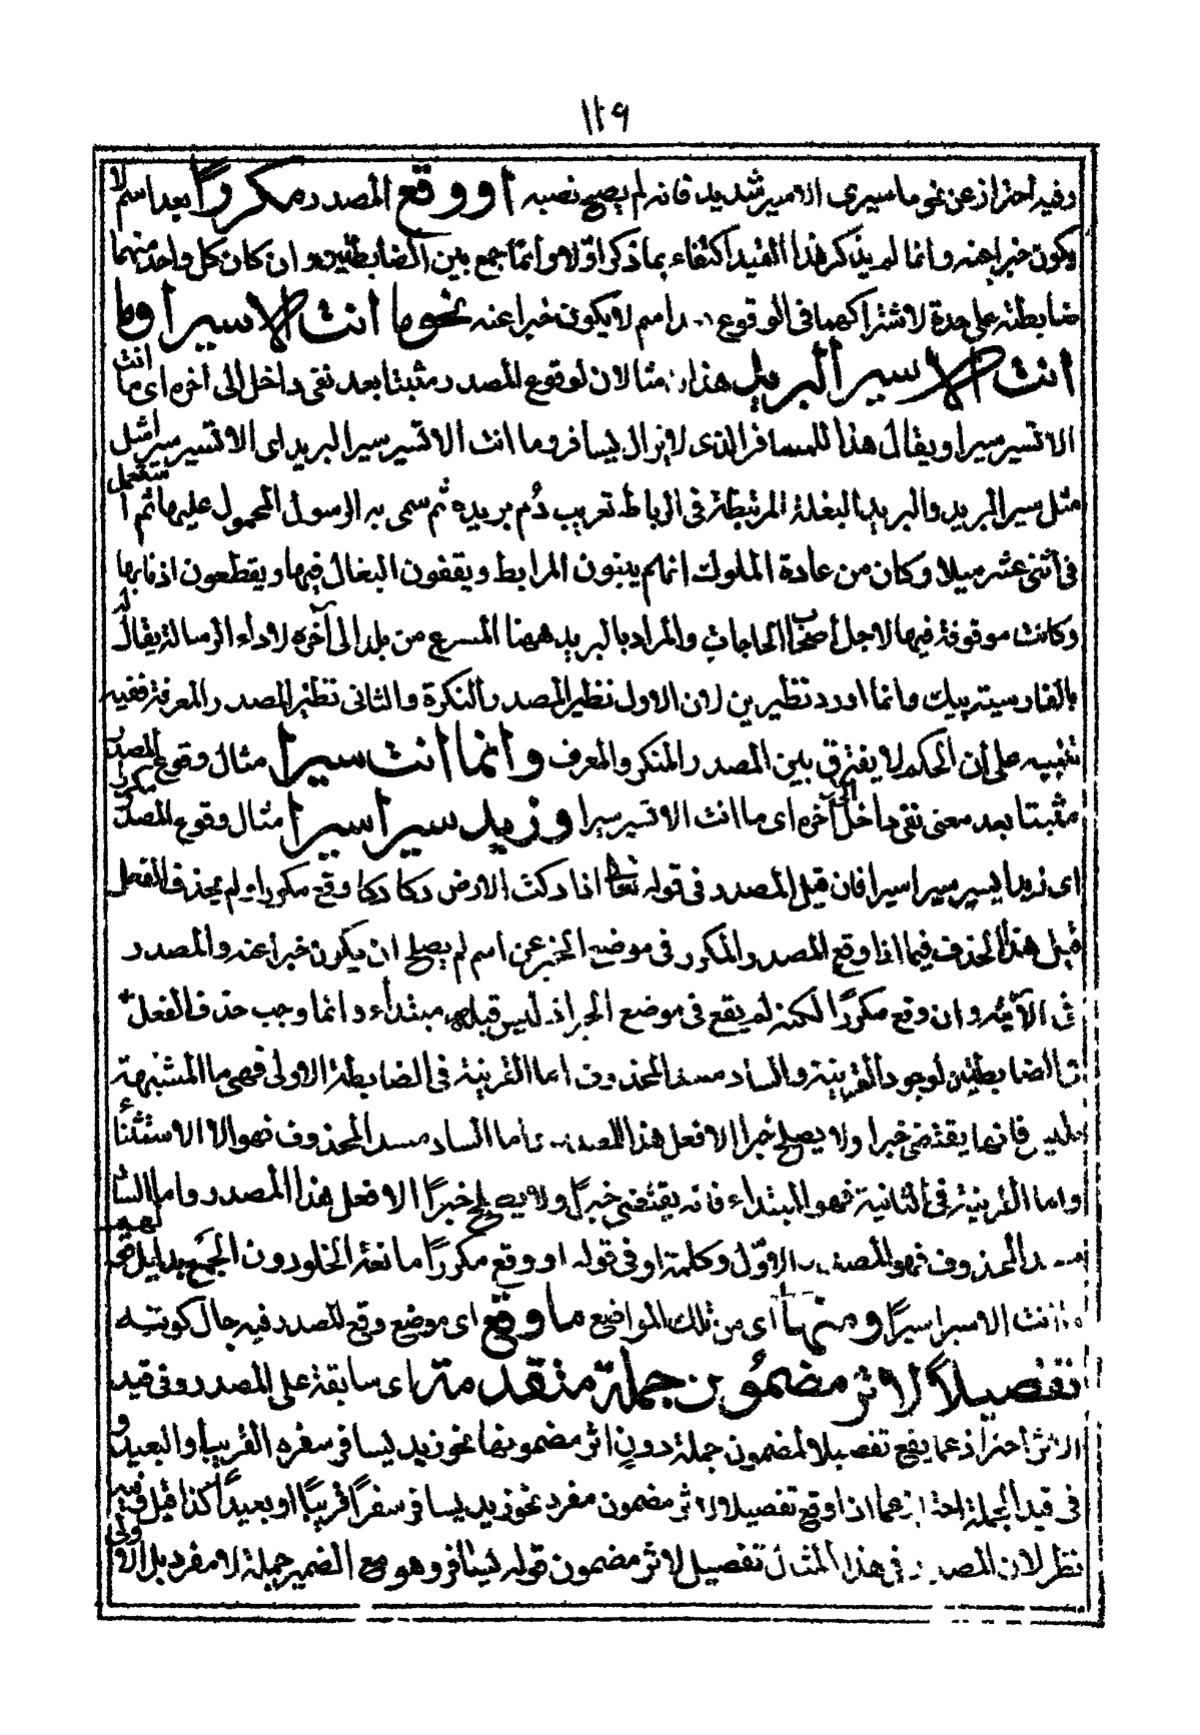 ١١٩
وفيه احتراز عن نحو ما سيرى الا سير شديد فانه لم يصح نصبه او وقع المصدر مكررا بعد اسم لا
يكون خبرا عنه وانما لم يذكر هذا القيد اكتفاء بما ذكر اولا وانما جمع بين الضابطتين وان كان كل واحد منهما
ضابطة على حدة لاشتراكهما فى الوقوع اسم لا يكون خبرا عنه نحو ما انت الا سيرا وما
انت الا سير البريد هذان مثالان لوقوع المصدر مثبتا بعد نفى داخل الى آخره اى ما انت
الا تسير سيرا ويقال هذا للمسافر الذى لا يزال يسافر وما انت الا تسير سير البريد اى الا تسير سيرا مثل
مثل سير البريد والبريد البغلة المرتبطة فى الرباط تعريب دُم بريده ثم سمى به الرسول المحمول عليها ثم استعمل
فى اثنى عشر ميلا وكان من عادة الملوك انهم يبنون المرابط ويقفون البغال فيها ويقطعون اذنابها
وكانت موقوفة فيها لاجل اصحاب الحاجات والمراد بالبريد ههنا المسرع من بلد الى آخره لاداء الرسالة يقال له
بالفارسية پيك وانما اورد نظيرين لان الاول نظير المصدر النكرة والثانى نظير المصدر المعرفة ففيه
تنبيه على ان الحكم لا يفترق بين المصدر المنكر والمعرف وانما انت سيرا مثال وقوع المصدر
مثبتا بعد معنى نفى داخل الى آخره اى ما انت الا تسير سيرا وزيد سيرا سيرا مثال وقوع المصدر مكررا
اى زيد يسير سيرا سيرا فان قيل المصدر فى قوله تعالى اذا دكت الارض دكا دكا وقع مكررا ولم يحذف الفعل
قيل هذا الحذف فيما اذا وقع المصدر المكرر فى موضع الخبر عن اسم لم يصلح ان يكون خبرا عنه والمصدر
فى الآية وان وقع مكررًا لكنه لم يقع فى موضع الخبر اذ ليس قبله مبتداء وانما وجب حذف الفعل
فى الضابطتين لوجود القرينة والساد مسد المحذوف اما القرينة فى الضابطة الاولى فهى ما المشبهة
بليس فانها يقتضى خبرا ولا يصلح خبرا الا فعل هذا المصدر واما الساد مسد المحذوف فهو الا الاستثناء
واما القرينة فى الثانية فهو المبتداء فانه يقتضى خبرًا ولا يصلح خبرًا الا فعل هذا المصدر واما الساد
مسد المحذوف فهو المصدر الاوّل وكلمة او فى قوله او وقع مكررًا مانعة الخلو دون الجمع بدليل صحة قولهم
ما انت الا سيرا سيرًا ومنها اى من تلك المواضع ما وقع اى موضع وقع المصدر فيه حال كونه
تفصيلًا لاثر مضمون جملة متقدمة اى سابقة على المصدر وفى قيد
الاثر احتراز عما يقع تفصيلا لمضمون جملة دون اثر مضمونها نحو زيد يسافر سفره القريب او البعيد و
فى قيد الجملة احتراز عما اذا وقع تفصيلا لاثر مضمون مفرد نحو زيد يسافر سفرًا قريبًا او بعيدًا كذا قيل وفيه
نظر لان المصدر فى هذا المثال تفصيل لاثر مضمون قوله يسافر وهو مع الضمير جملة لا مفرد بل الاولى